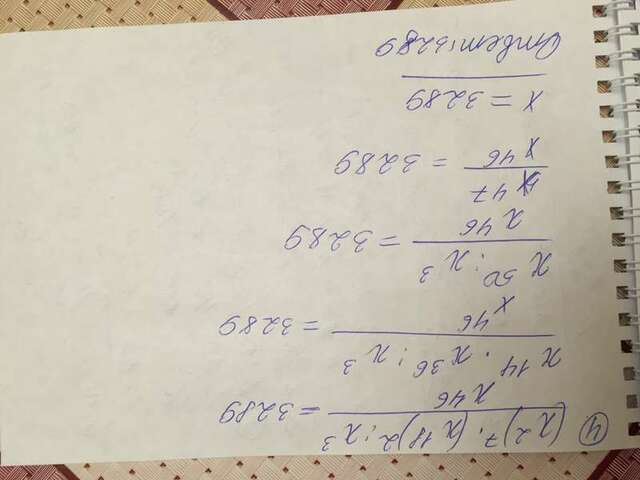 4. (x²)⁷ · (x¹⁸)² : x³ / x⁴⁶ = 3289
x¹⁴ · x³⁶ : x³ / x⁴⁶ = 3289
x⁵⁰ : x³ / x⁴⁶ = 3289
x⁴⁷ / x⁴⁶ = 3289
x = 3289
Ответ: 3289